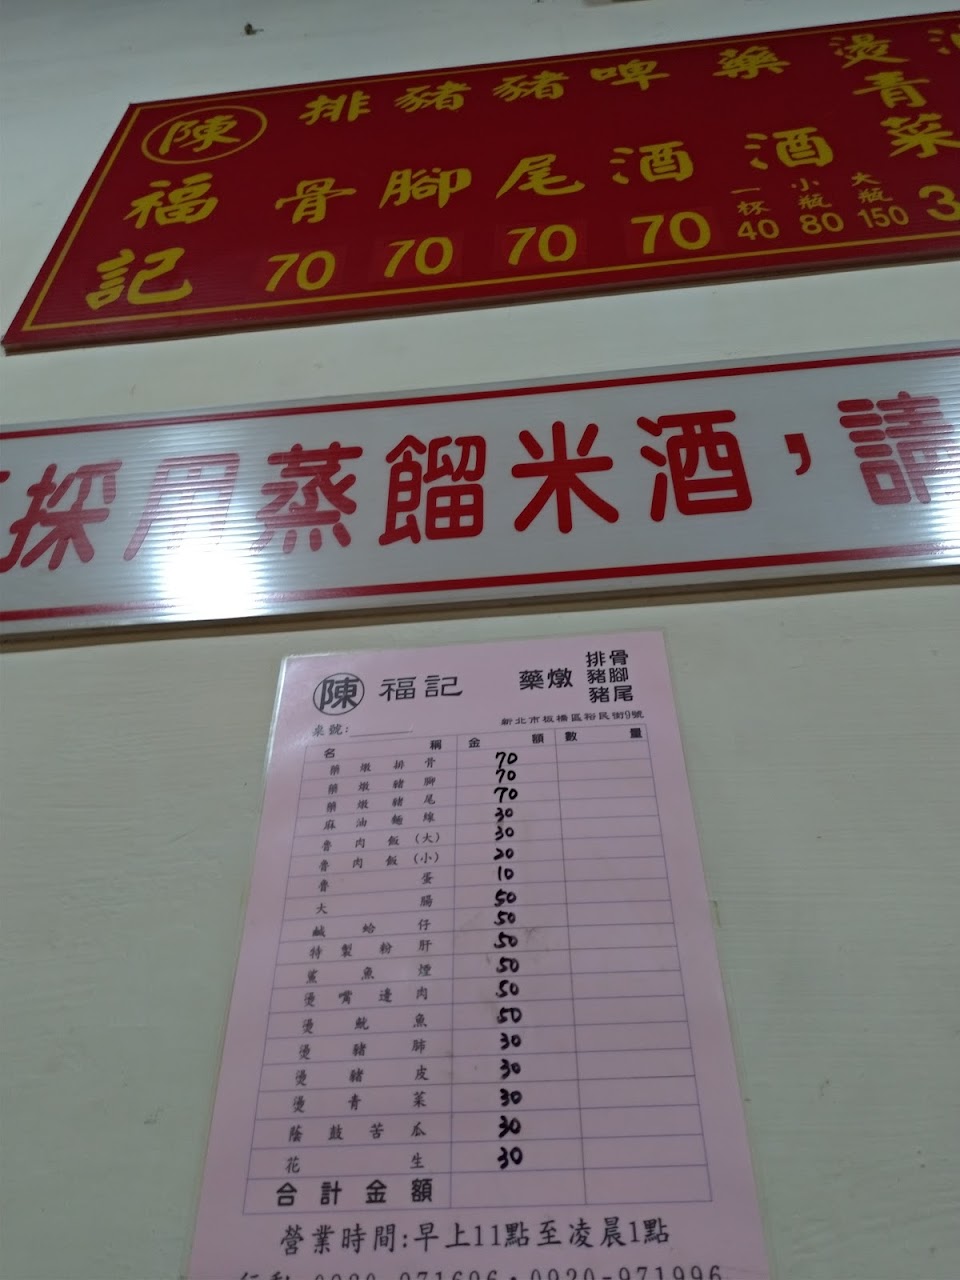 陳福記
排骨 70
豬腳 70
豬尾 70
啤酒 70
藥酒 一杯 40 小瓶 80 大瓶 150
燙青菜 3
採用蒸餾米酒，請
陳 福記 藥燉 排骨 豬腳 豬尾
桌號: 新北市板橋區裕民街9號
名稱 金額 數量
藥燉排骨 70
藥燉豬腳 70
藥燉豬尾 70
麻油麵線 30
魯肉飯(大) 30
魯肉飯(小) 20
魯蛋 10
大腸 50
鹹蛤仔 50
特製粉肝 50
鯊魚煙 50
燙嘴邊肉 50
燙魷魚 50
燙豬肺 30
燙豬皮 30
燙青菜 30
蔭鼓苦瓜 30
花生 30
合計金額
營業時間:早上11點至凌晨1點